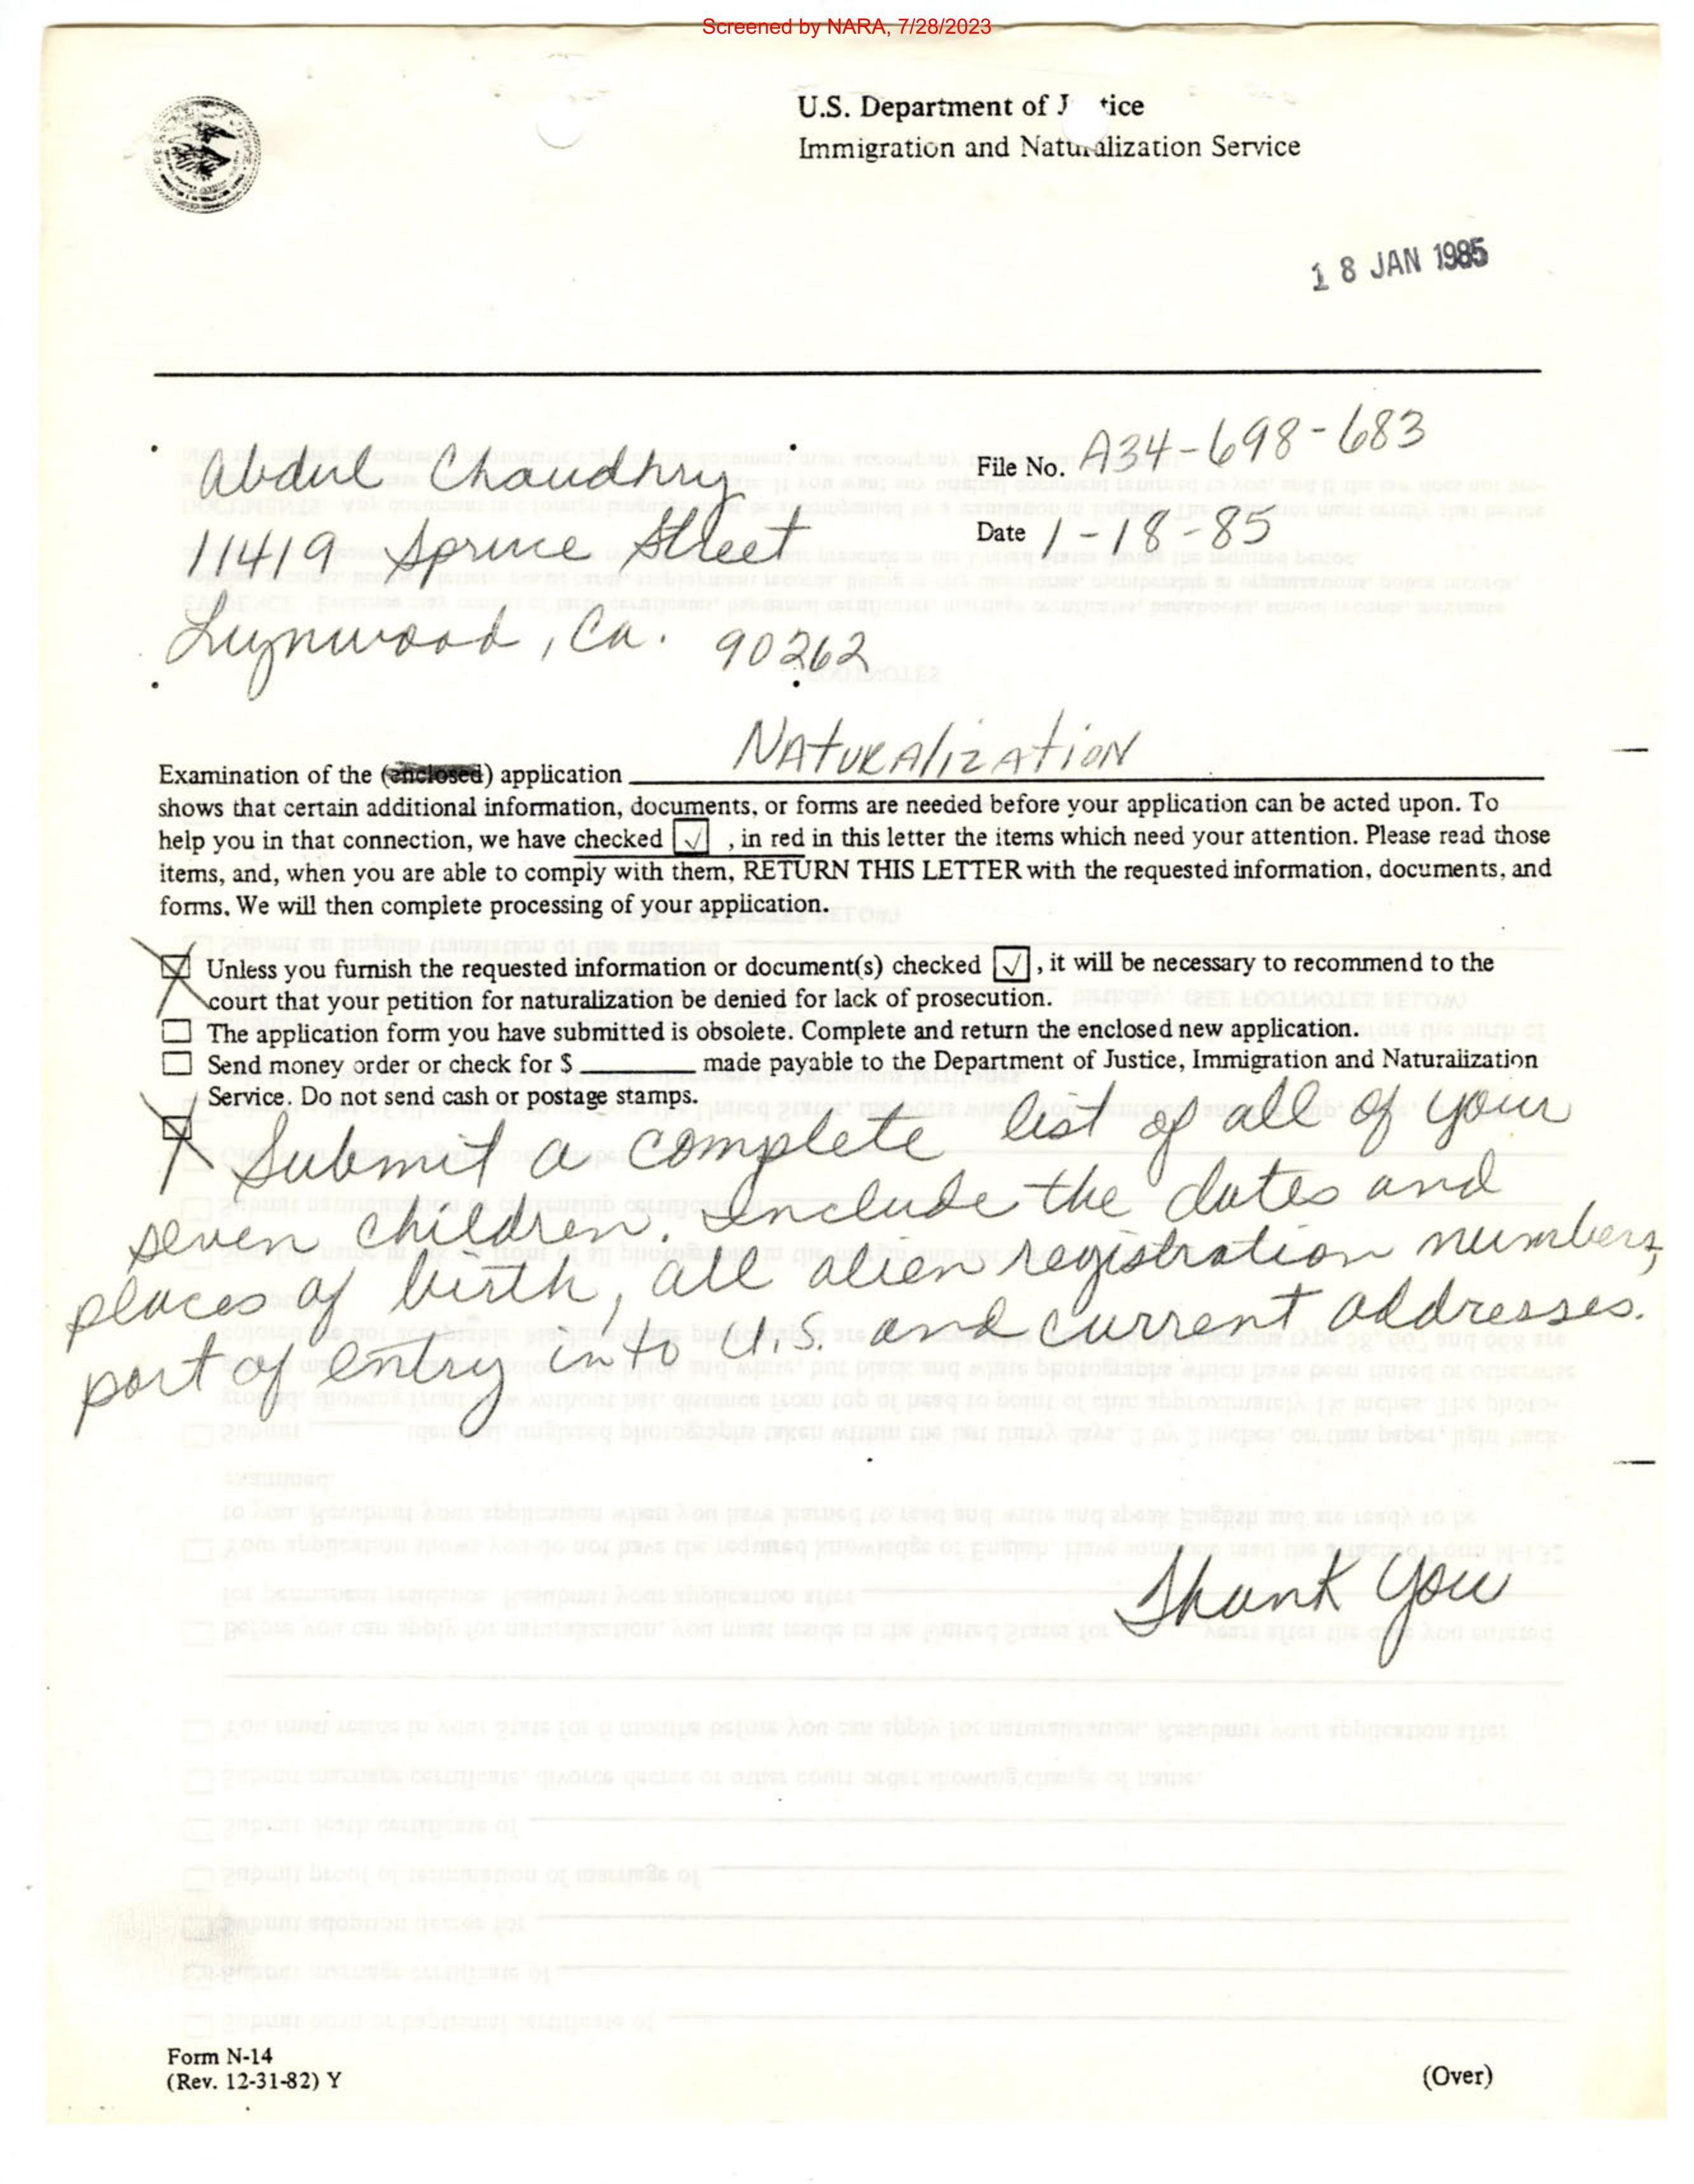 Screened by NARA, 7/28/2023
U.S. Department of J tice
Immigration and Naturalization Service
18 JAN 1985
Abdul Chaudhry
11419 Spruce Street
Lynwood, Ca. 90262
File No. A34-698-683
Date 1-18-85
Examination of the (enclosed) application Naturalization
shows that certain additional information, documents, or forms are needed before your application can be acted upon. To
help you in that connection, we have checked ☑ , in red in this letter the items which need your attention. Please read those
items, and, when you are able to comply with them, RETURN THIS LETTER with the requested information, documents, and
forms. We will then complete processing of your application.
☒ Unless you furnish the requested information or document(s) checked ☑ , it will be necessary to recommend to the
court that your petition for naturalization be denied for lack of prosecution.
☐ The application form you have submitted is obsolete. Complete and return the enclosed new application.
☐ Send money order or check for $ ________ made payable to the Department of Justice, Immigration and Naturalization
Service. Do not send cash or postage stamps.
☒ Submit a complete list of all of your
seven children. Include the dates and
places of birth, all alien registration numbers,
port of entry into U.S. and current addresses.
Thank You
Form N-14
(Rev. 12-31-82) Y
(Over)